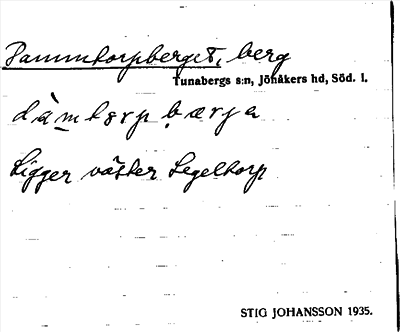 Dammtorpberget, berg
Tunabergs s:n, Jönåkers hd, Söd. l.
dàmtɔrp bærja
Ligger väster Segeltorp
STIG JOHANSSON 1935.